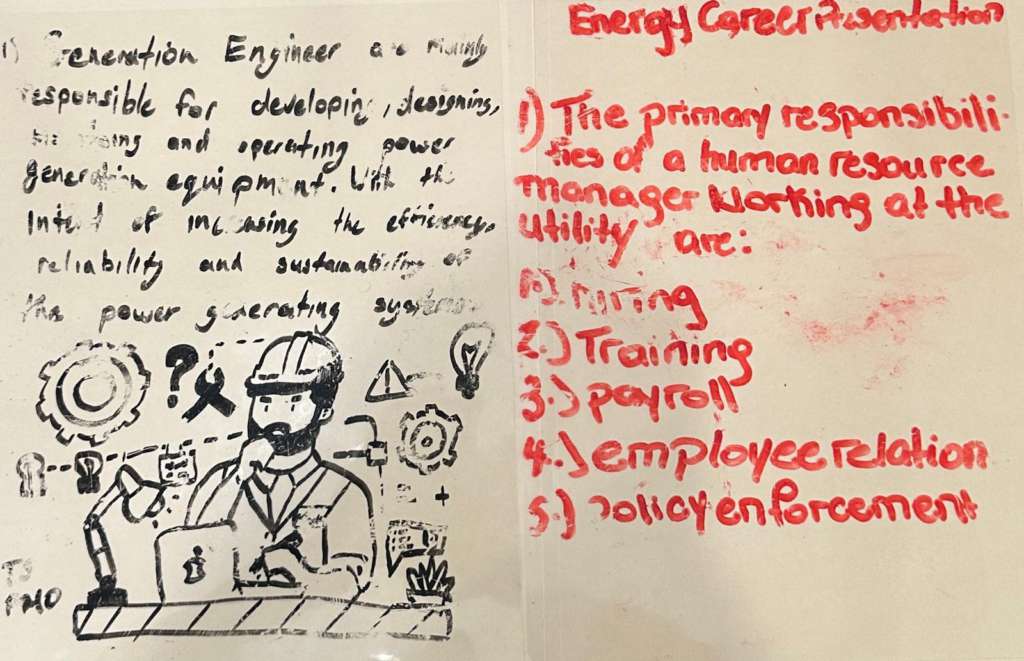 1) Generation Engineer are mainly
responsible for developing, designing,
and operating power
generation equipment. With the
Intent of increasing the efficiency,
reliability and sustainability of
the power generating systems.
Energy Career Presentation
1) The primary responsibili-
ties of a human resource
manager Working at the
Utility are:
1.) Hiring
2.) Training
3.) payroll
4.) employee relation
5.) policy enforcement